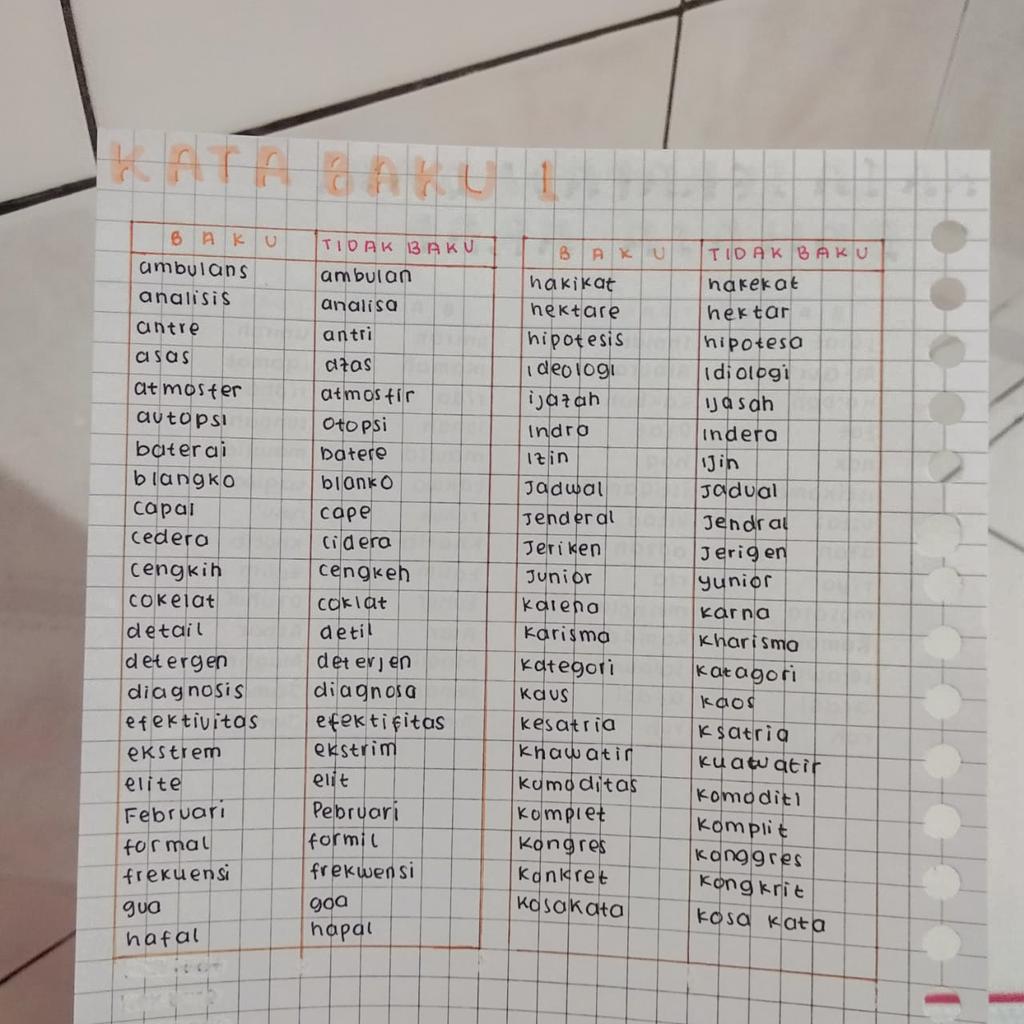 KATA BAKU 1
BAKU TIDAK BAKU
ambulans ambulan
analisis analisa
antre antri
asas azas
atmosfer atmosfir
autopsi otopsi
baterai batere
blangko blanko
capai cape
cedera cidera
cengkih cengkeh
cokelat coklat
detail detil
detergen deterjen
diagnosis diagnosa
efektivitas efektifitas
ekstrem ekstrim
elite elit
Februari Pebruari
formal formil
frekuensi frekwensi
gua goa
hafal hapal
BAKU TIDAK BAKU
hakikat hakekat
hektare hektar
hipotesis hipotesa
ideologi idiologi
ijazah ijasah
indra indera
izin ijin
jadwal jadual
jenderal jendral
jeriken jerigen
junior yunior
karena karna
karisma kharisma
kategori katagori
kaus kaos
kesatria ksatria
khawatir kuatwatir
komoditas komoditi
komplet komplit
kongres konggres
konkret kongkrit
kosakata kosa kata